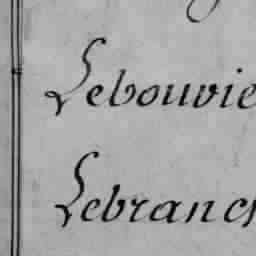 Lebouvie
Lebranch